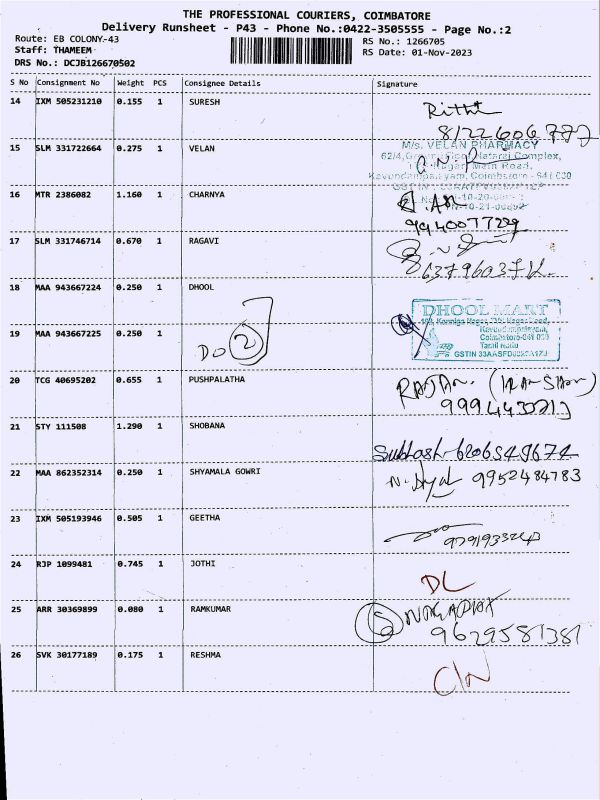 THE PROFESSIONAL COURIERS, COIMBATORE
Delivery Runsheet - P43 - Phone No.:0422-3505555 - Page No.:2
Route: EB COLONY-43
RS No.: 1266705
Staff: THAMEEM
RS Date: 01-Nov-2023
DRS No.: DCJB126670502
S No Consignment No Weight PCS Consignee Details Signature
14 IXM 505231210 0.155 1 SURESH
8122606777
15 SLM 331722664 0.275 1 VELAN
M/s. VELAN PHARMACY
Main Road,
16 MTR 2386082 1.160 1 CHARNYA
17 SLM 331746714 0.670 1 RAGAVI
18 MAA 943667224 0.250 1 DHOOL
DHOOL MART
Tamil Nadu
19 MAA 943667225 0.250 1
DO 2
20 TCG 40695202 0.655 1 PUSHPALATHA
21 STY 111508 1.290 1 SHOBANA
Subhash 6206549674
22 MAA 862352314 0.250 1 SHYAMALA GOWRI
9952484783
23 IXM 505193946 0.505 1 GEETHA
24 RJP 1099481 0.745 1 JOTHI
DL
25 ARR 30369899 0.080 1 RAMKUMAR
9629581381
26 SVK 30177189 0.175 1 RESHMA
C/N